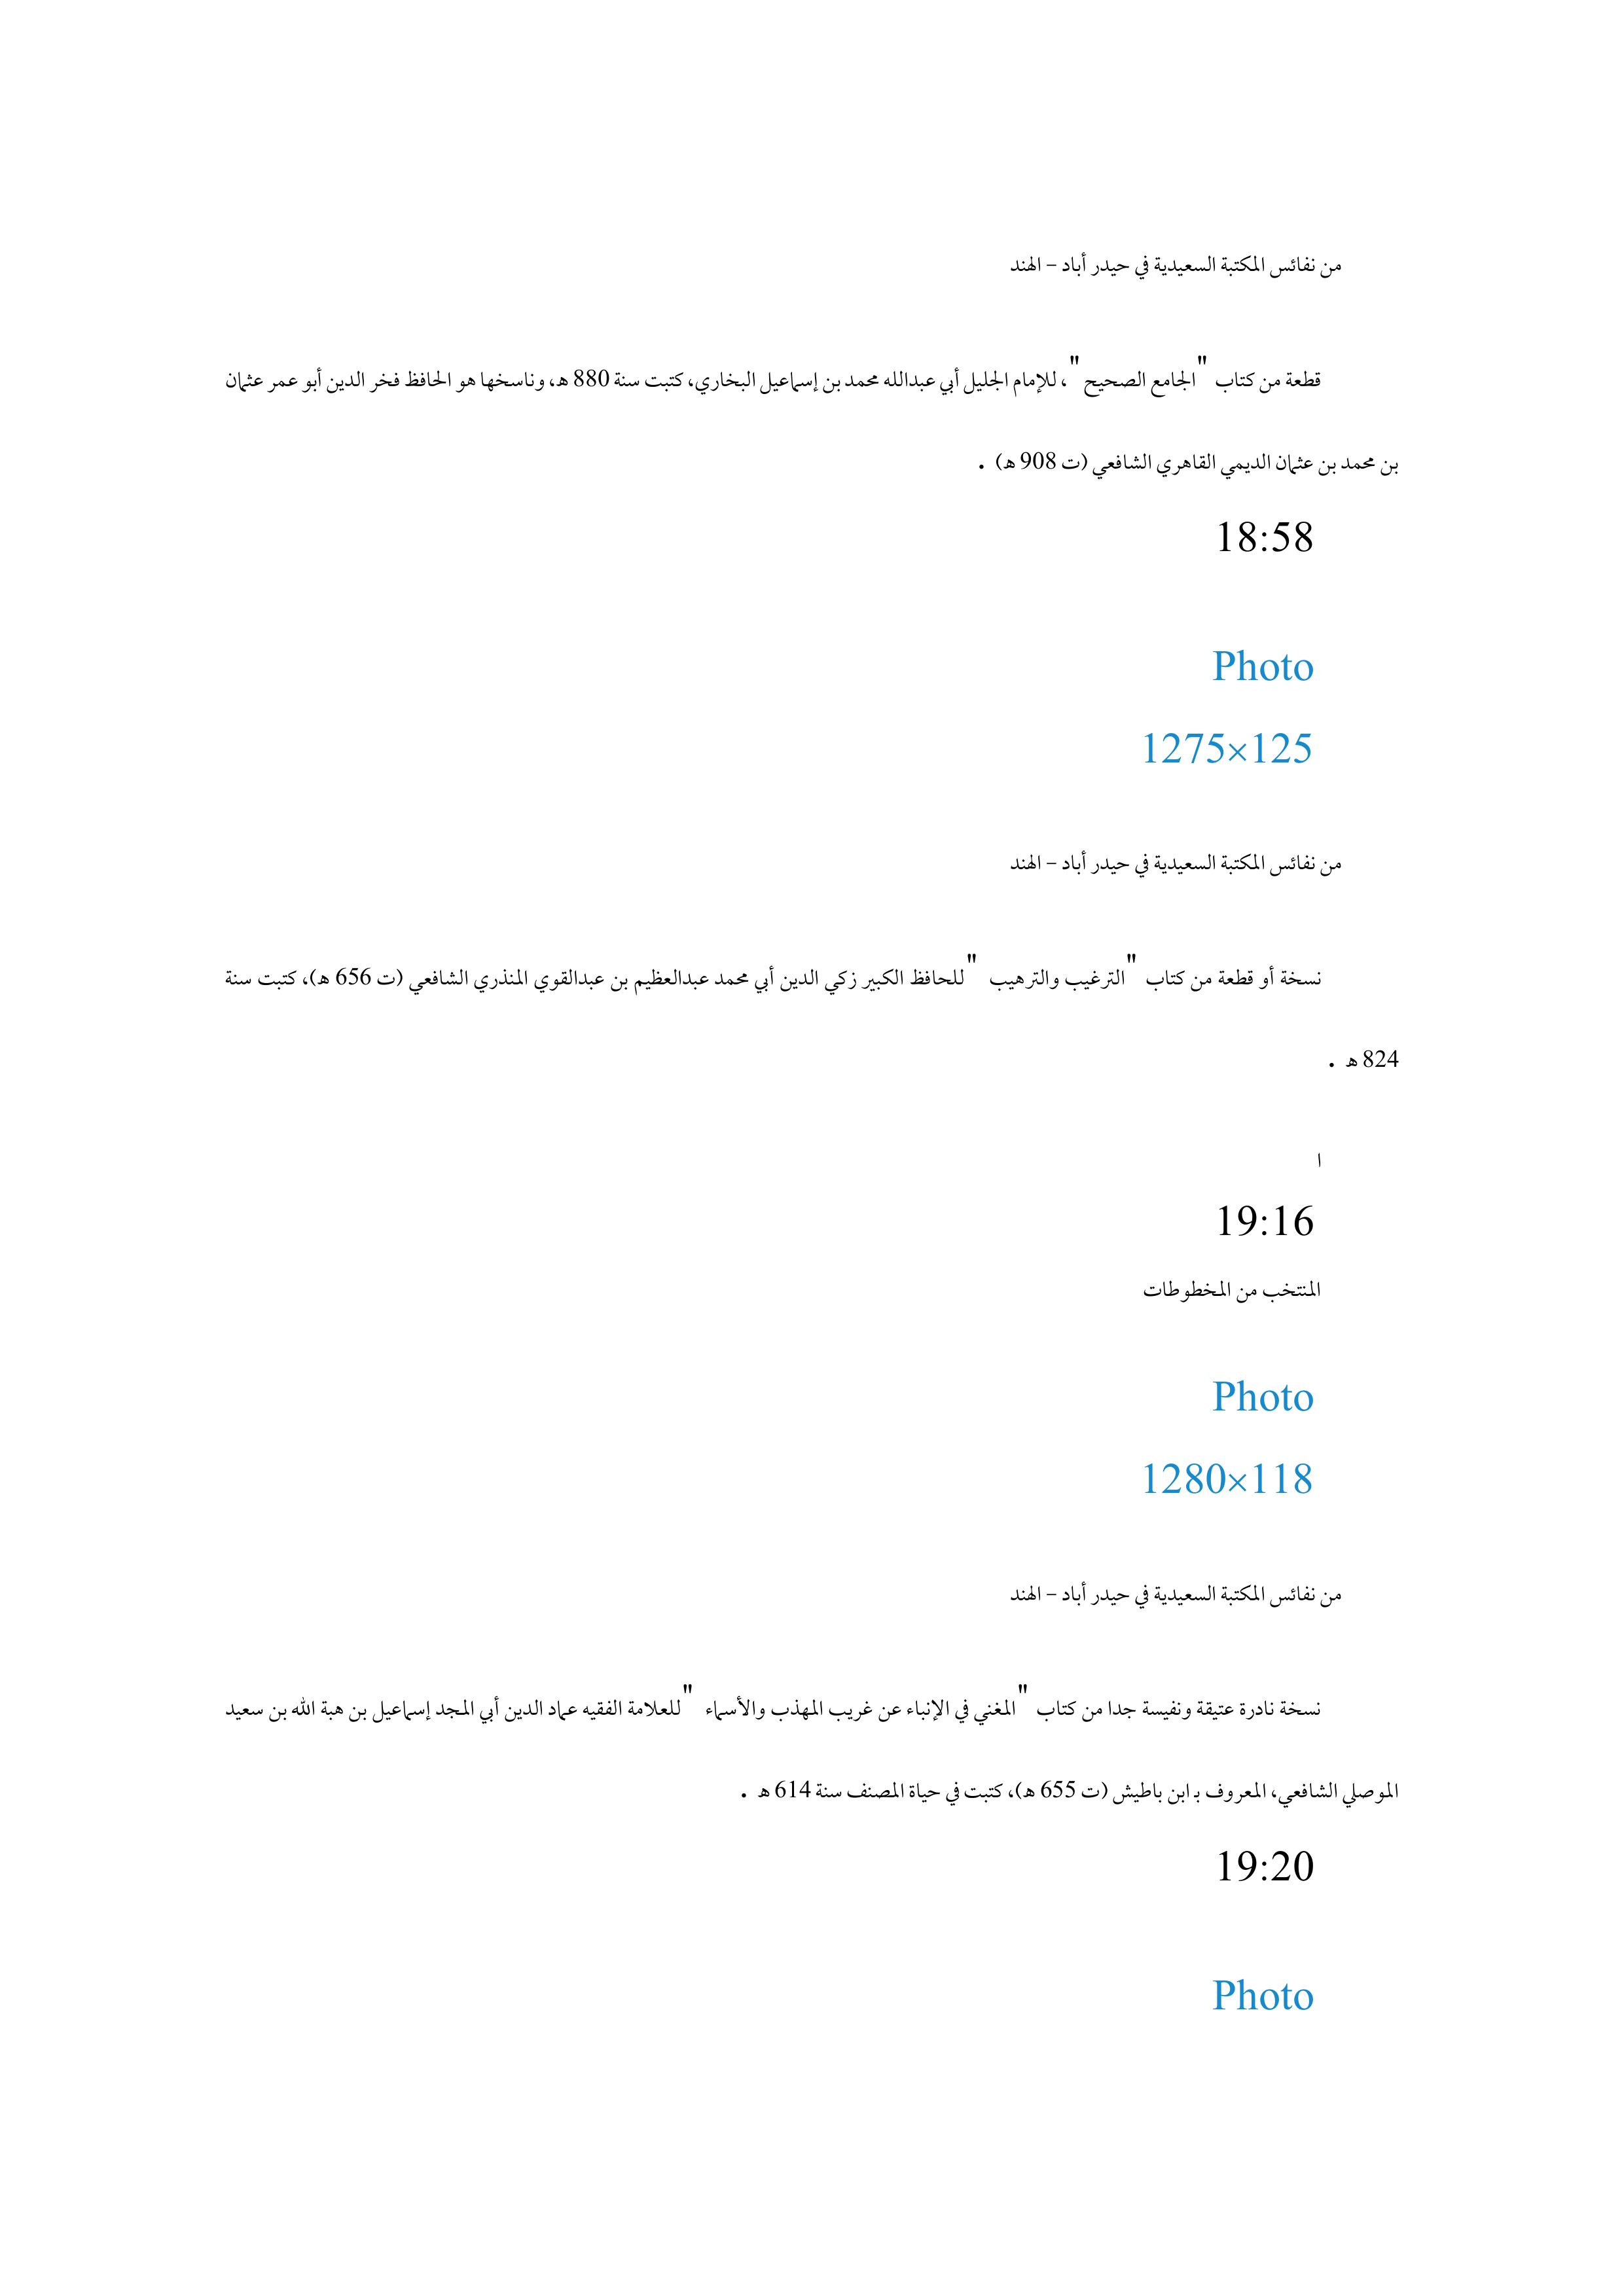 من نفائس المكتبة السعيدية في حيدر أباد – الهند
قطعة من كتاب "الجامع الصحيح"، للإمام الجليل أبي عبدالله محمد بن إسماعيل البخاري، كتبت سنة 880 هـ، وناسخها هو الحافظ فخر الدين أبو عمر عثمان
بن محمد بن عثمان الديمي القاهري الشافعي (ت 908 هـ) .
18:58
Photo
1275×125
من نفائس المكتبة السعيدية في حيدر أباد – الهند
نسخة أو قطعة من كتاب "الترغيب والترهيب "للحافظ الكبير زكي الدين أبي محمد عبدالعظيم بن عبدالقوي المنذري الشافعي (ت 656 هـ)، كتبت سنة
824 هـ .
ا
19:16
المنتخب من المخطوطات
Photo
1280×118
من نفائس المكتبة السعيدية في حيدر أباد – الهند
نسخة نادرة عتيقة ونفيسة جدا من كتاب "المغني في الإنباء عن غريب المهذب والأسماء "للعلامة الفقيه عماد الدين أبي المجد إسماعيل بن هبة الله بن سعيد
الموصلي الشافعي، المعروف بـ ابن باطيش (ت 655 هـ)، كتبت في حياة المصنف سنة 614 هـ .
19:20
Photo